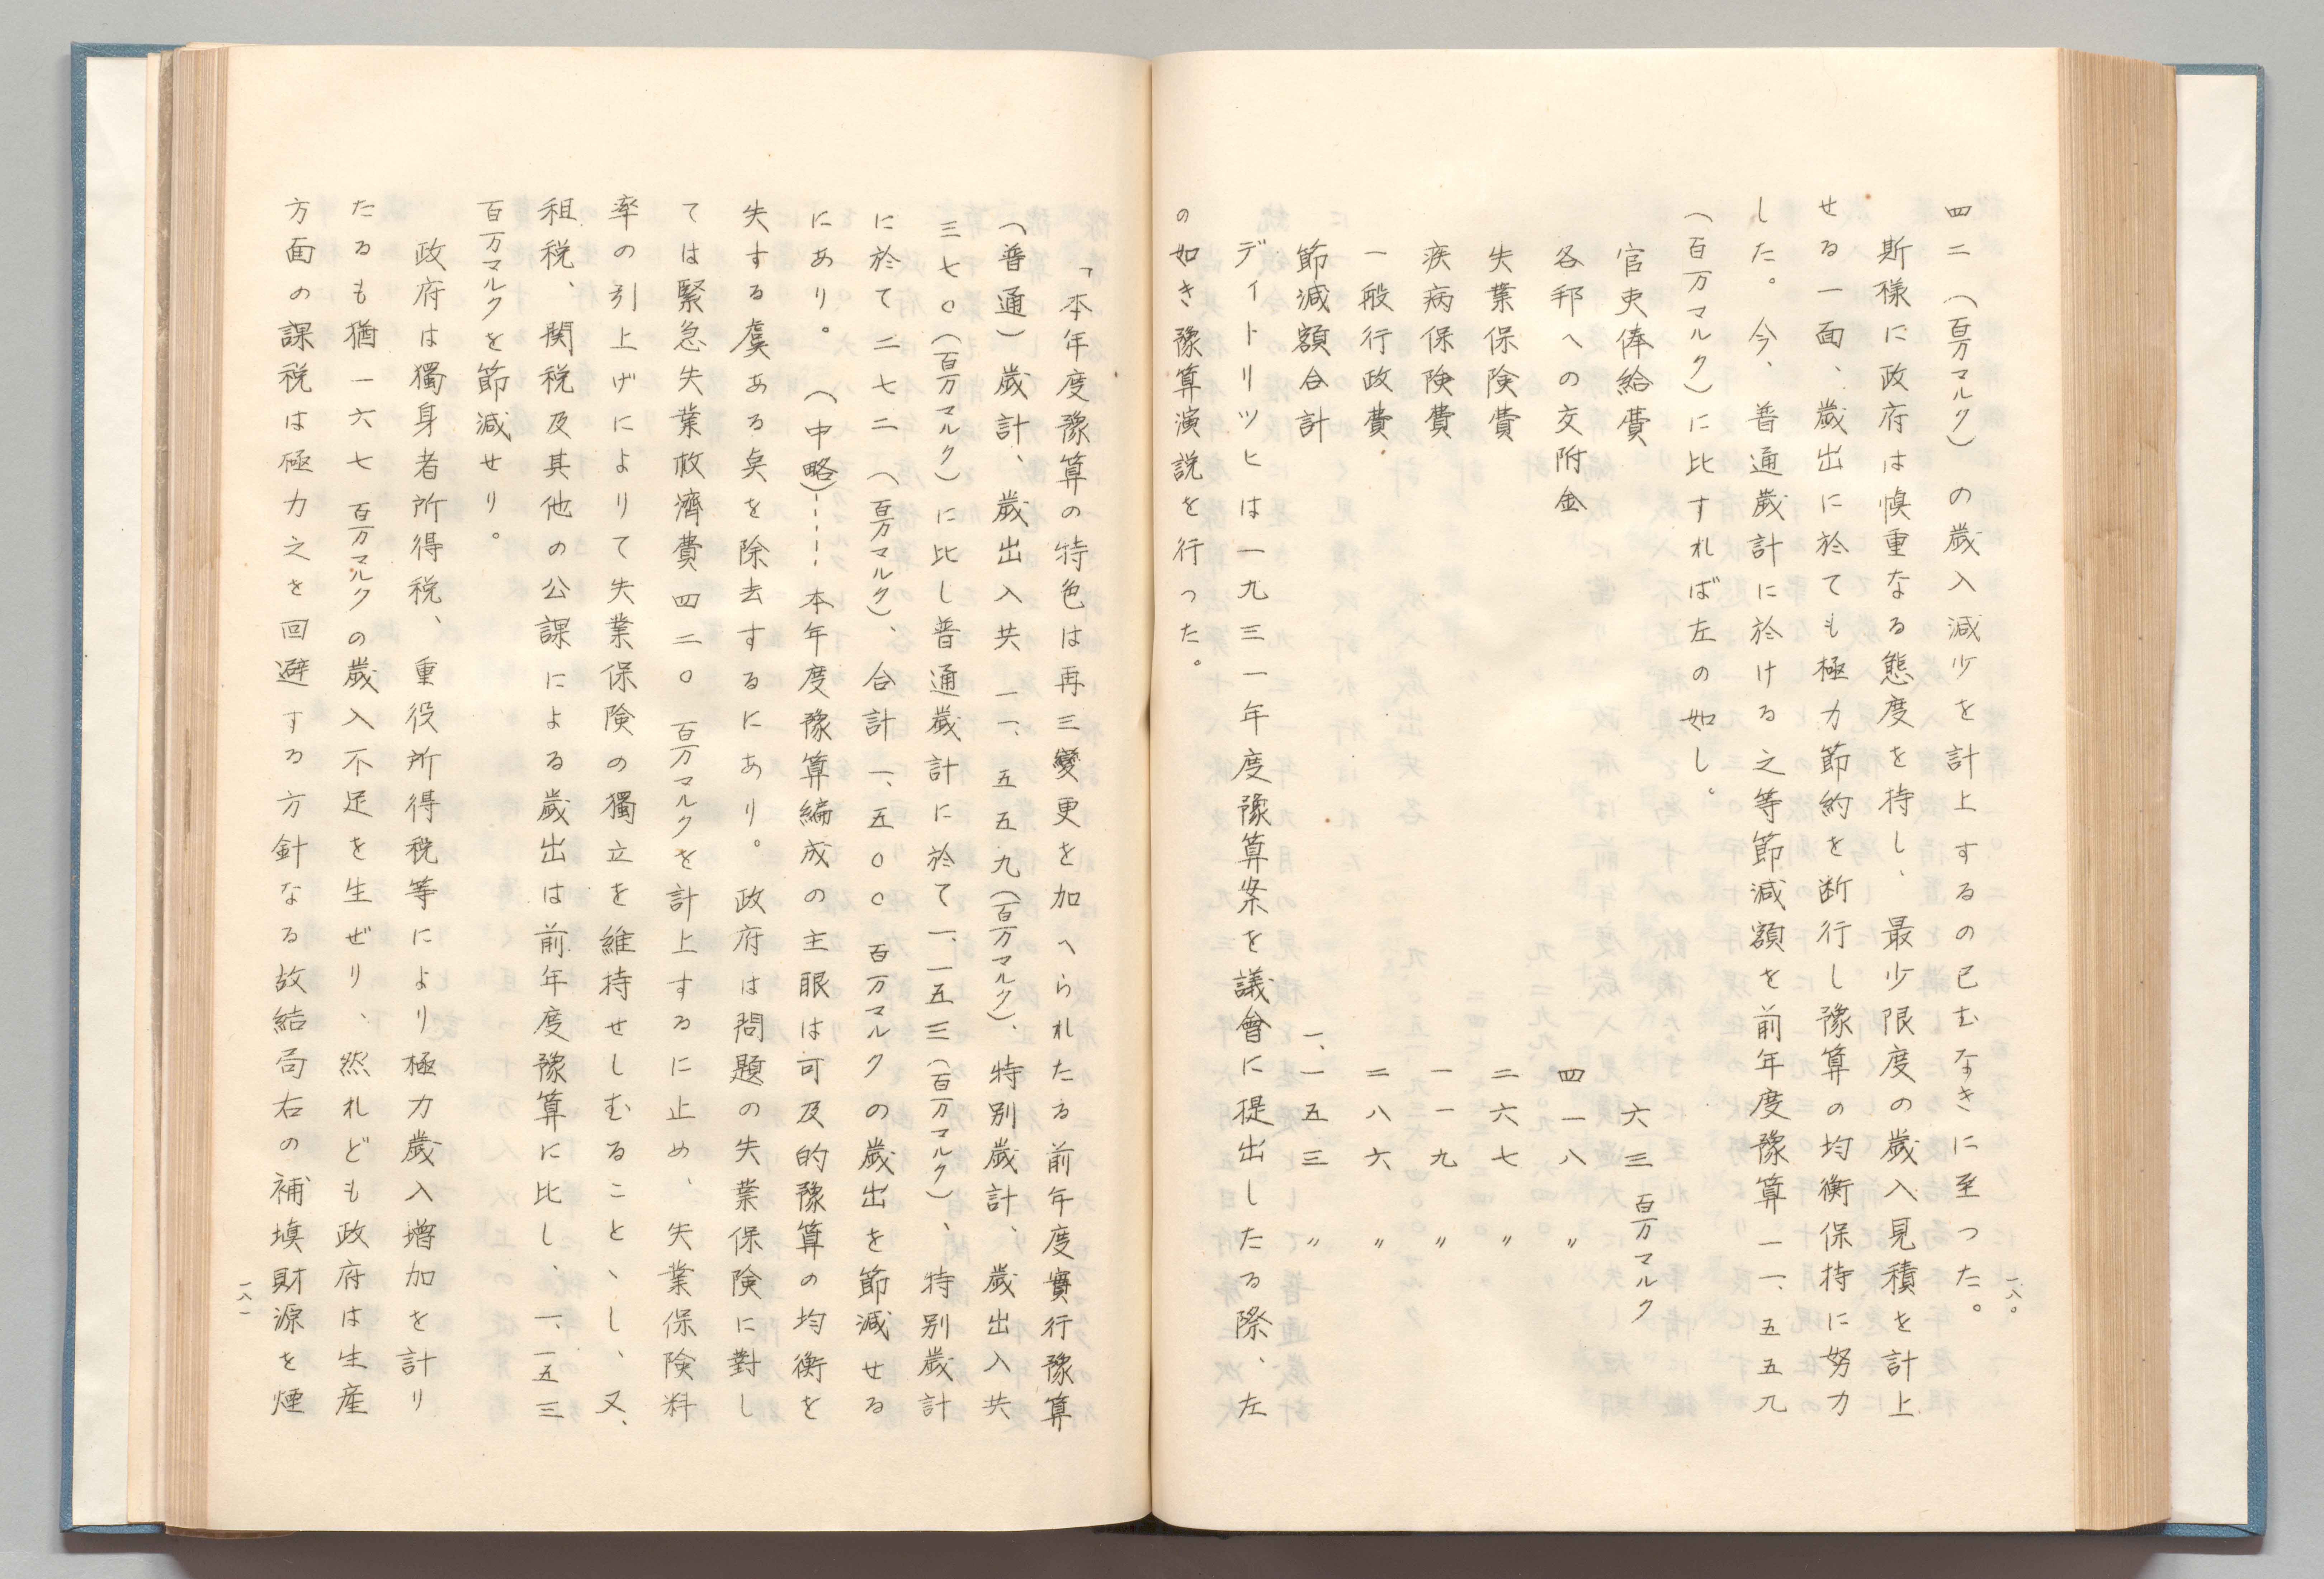 四二（百万マルク）の歳入減少を計上するの已むなきに至つた。
斯様に政府は慎重なる態度を持し、最少限度の歳入見積を計上
せる一面、歳出に於ても極力節約を断行し豫算の均衡保持に努力
した。今、普通歳計に於ける之等節減額を前年度豫算一一、五五九
（百万マルク）に比すれば左の如し。
官吏俸給費 六三 百万マルク
各邦への交附金 四一八 〃
失業保険費 二六七 〃
疾病保険費 一一九 〃
一般行政費 二八六 〃
節減額合計 一、一五三
ディトリツヒは一九三一年度豫算案を議會に提出したる際、左
の如き豫算演説を行つた。
一八〇
「本年度豫算の特色は再三變更を加へられたる前年度實行豫算
（普通）歳計、歳出入共一一、五五九（百万マルク）、特別歳計、歳出入共
三七〇（百万マルク）に比し普通歳計に於て一、一五三（百万マルク）、特別歳計
に於て二七二（百万マルク）、合計一、五〇〇百万マルクの歳出を節減せる
にあり。（中略）----本年度豫算編成の主眼は可及的豫算の均衡を
失する虞ある点を除去するにあり。政府は問題の失業保険に對し
ては緊急失業救濟費四二〇百万マルクを計上するに止め、失業保険料
率の引上げによりて失業保険の獨立を維持せしむることゝし、又、
租税、関税及其他の公課による歳出は前年度豫算に比し、一、一五三
百万マルクを節減せり。
政府は獨身者所得税、重役所得税等により極力歳入増加を計り
たるも猶一六七百万マルクの歳入不足を生ぜり、然れども政府は生産
方面の課税は極力之を回避する方針なる故結局右の補塡財源を煙
一八一